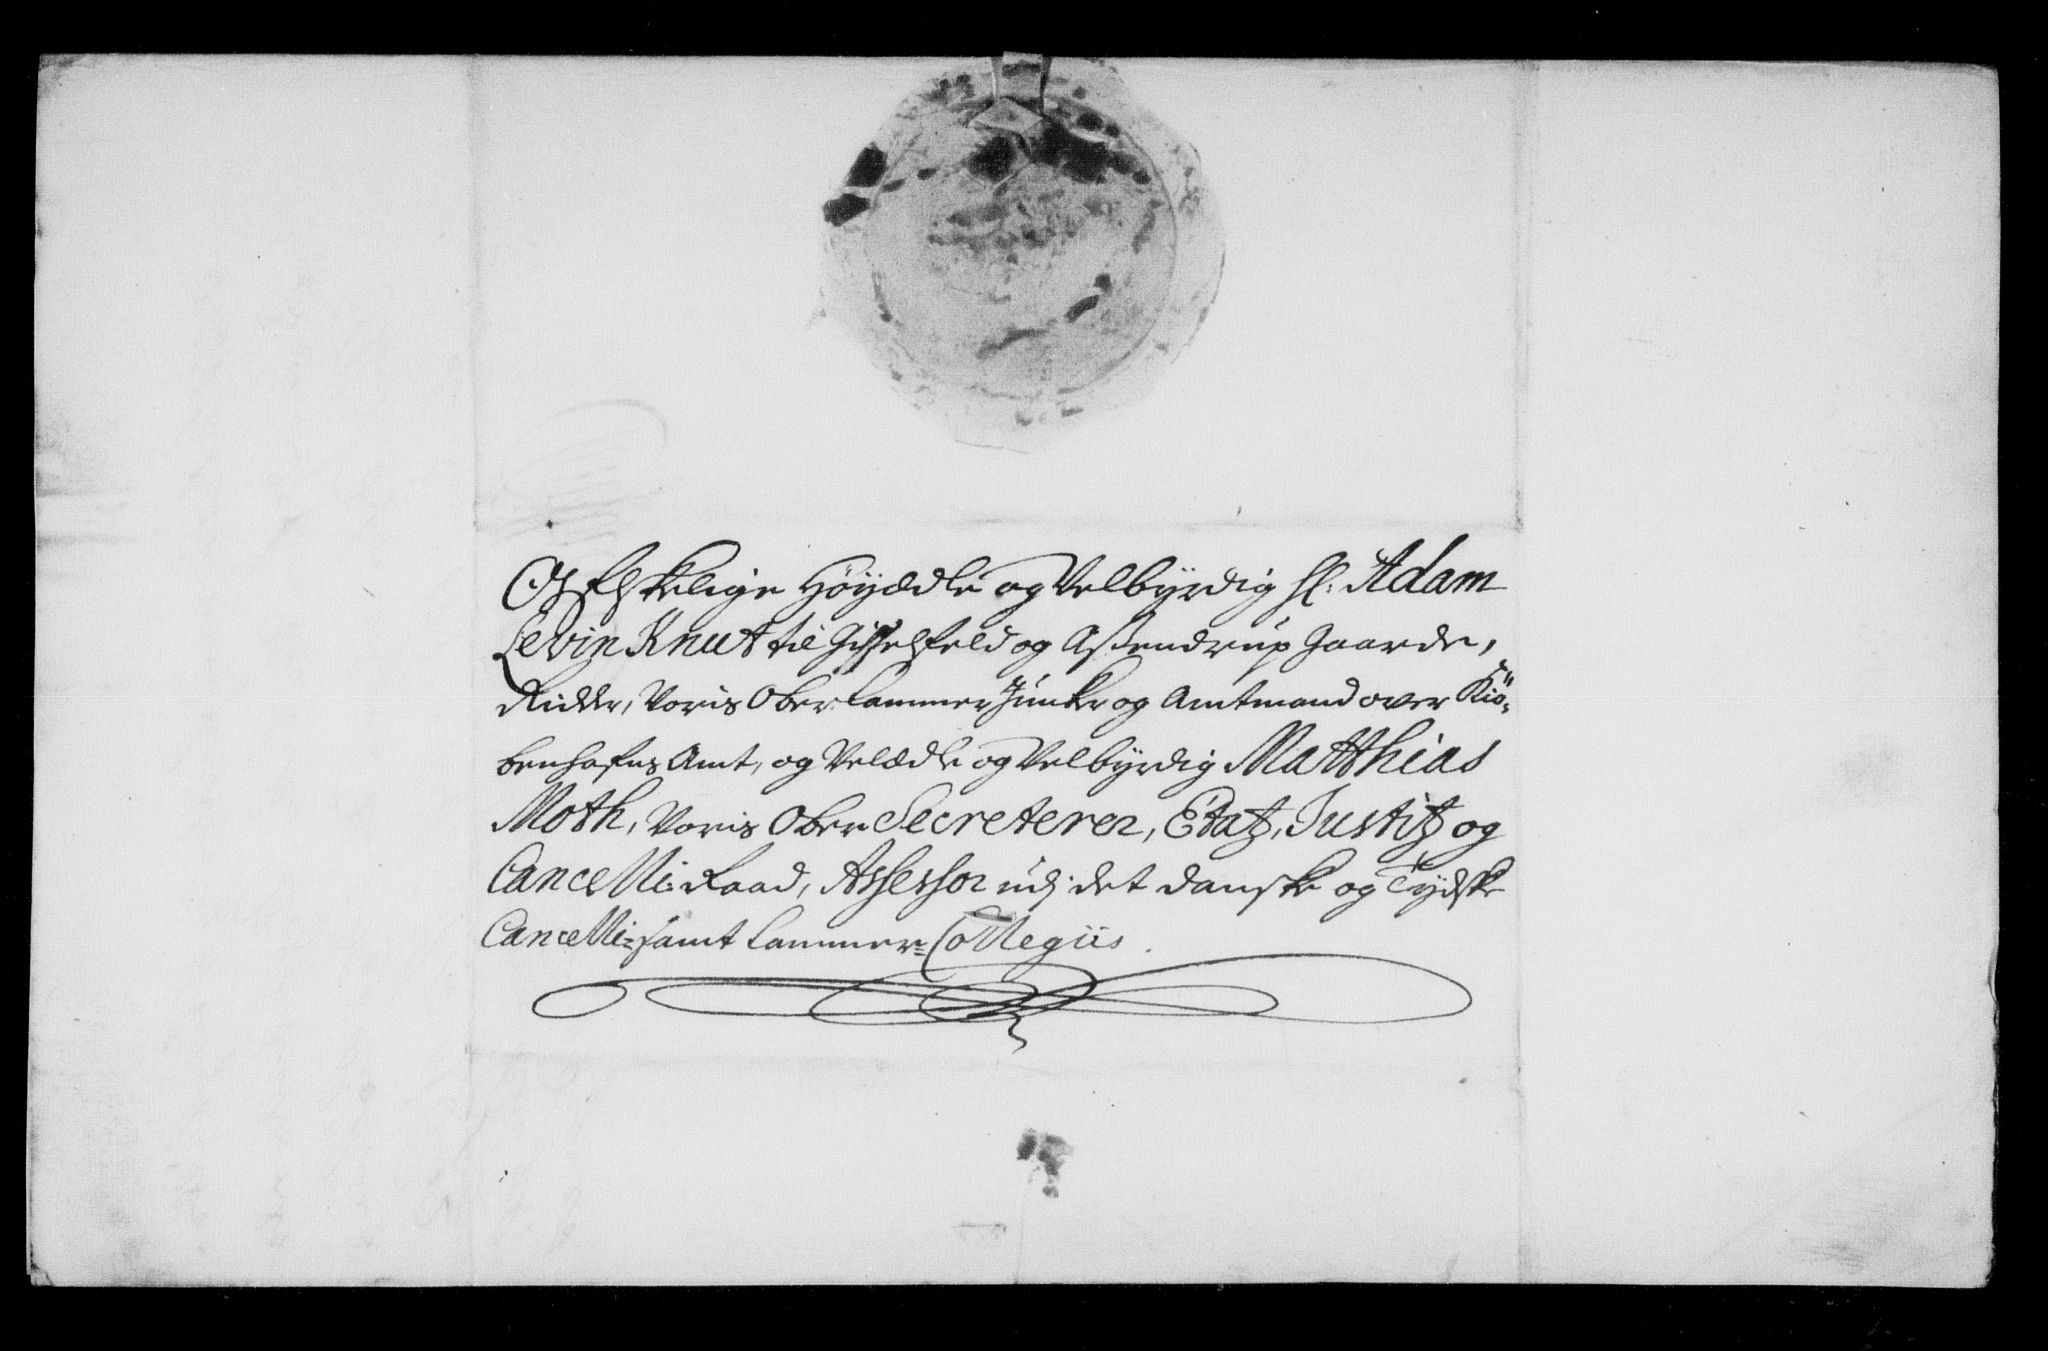 Os Elskelige Höyædle og Velbyrdig Hr: Adam
Levin Knut til Gisselfeld og Assendrup Gaarde,
Ridder, Voris Ober Cammer Juncker og Amtmand over Kiö-
benhafns Amt, og Velædle og Velbyrdig Matthias
Moth, Voris Ober Secreterer, Etatz, Justitz og
Cancelli Raad, Assessor udj det danske og Tydske
Cancelli- samt Cammer- Collegiis.